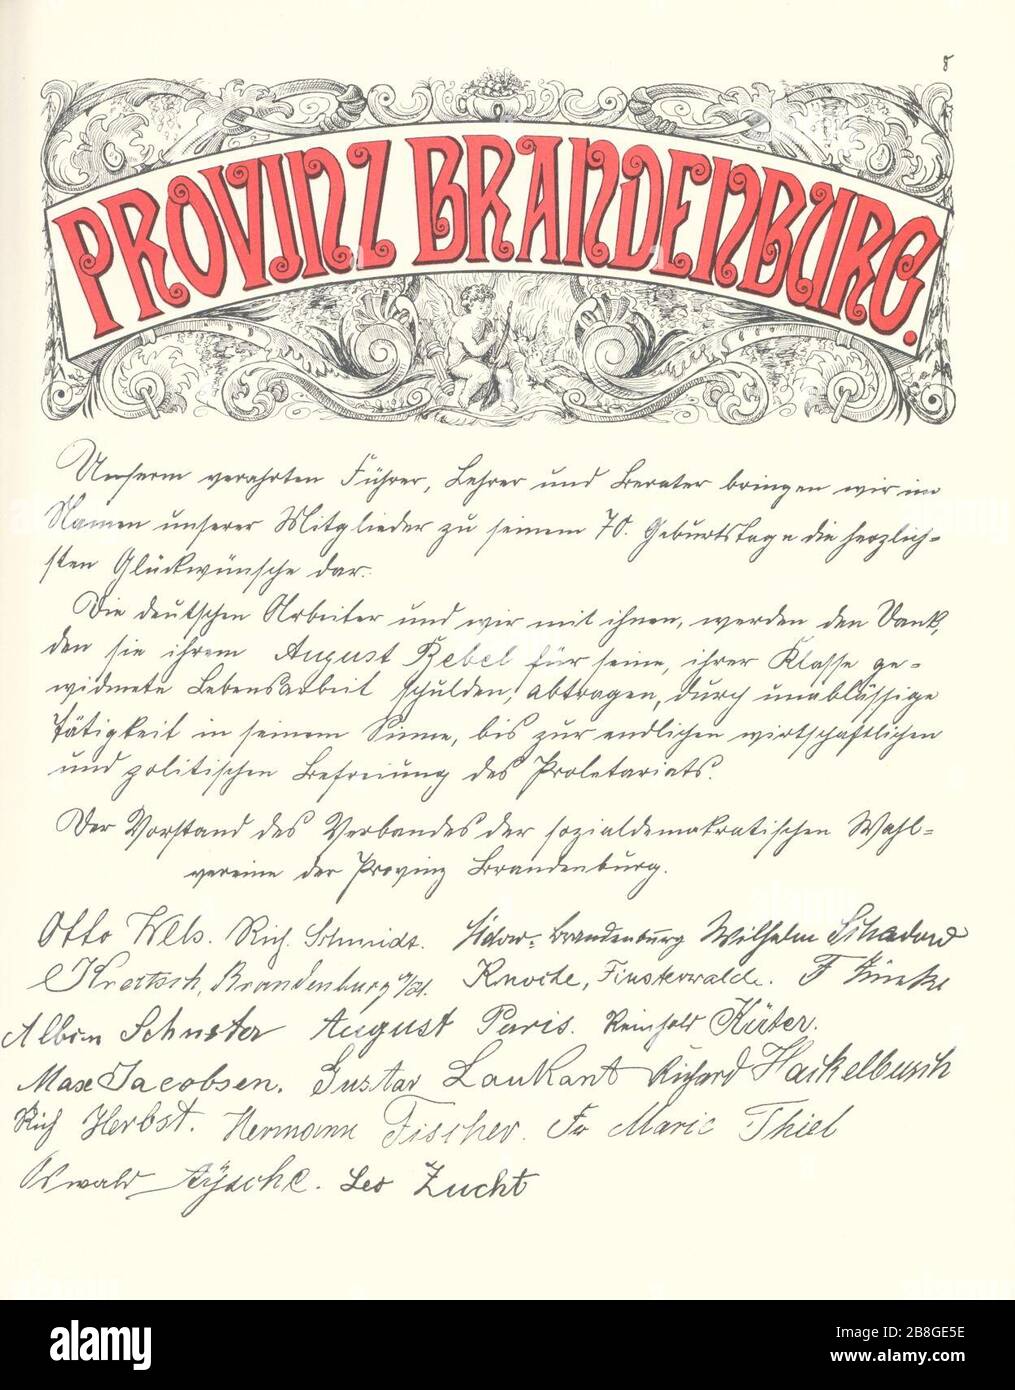 8
PROVINZ BRANDENBURG.
Unserm verehrten Führer, Lehrer und Berater bringen wir im
Namen unserer Mitglieder zu seinem 70. Geburtstage die herzlich-
sten Glückwünsche dar.
Die deutschen Arbeiter und wir mit ihnen, werden den Dank,
den sie ihrem August Bebel für seine, ihrer Klasse ge-
widmete Lebensarbeit schulden, abtragen, durch unablässige
Tätigkeit in seinem Sinne, bis zur endlichen wirtschaftlichen
und politischen Befreiung des Proletariats.
Der Vorstand des Verbandes der sozialdemokratischen Wahl-
vereine der Provinz Brandenburg.
Otto Wels. Rich. Schmidt. Sidow-Brandenburg Wilhelm Schadow
Brandenburg a/H. Knoche, Finsterwalde. F
Albin Schuster August Paris. Reinhold Küter.
Max Jacobsen. Gustav Laukant Richard Hackelbusch
Rich Herbst. Hermann Fischer. Fr Marie Thiel
Oswald Leo Zucht
alamy
Image ID: 2B8GE5E
www.alamy.com